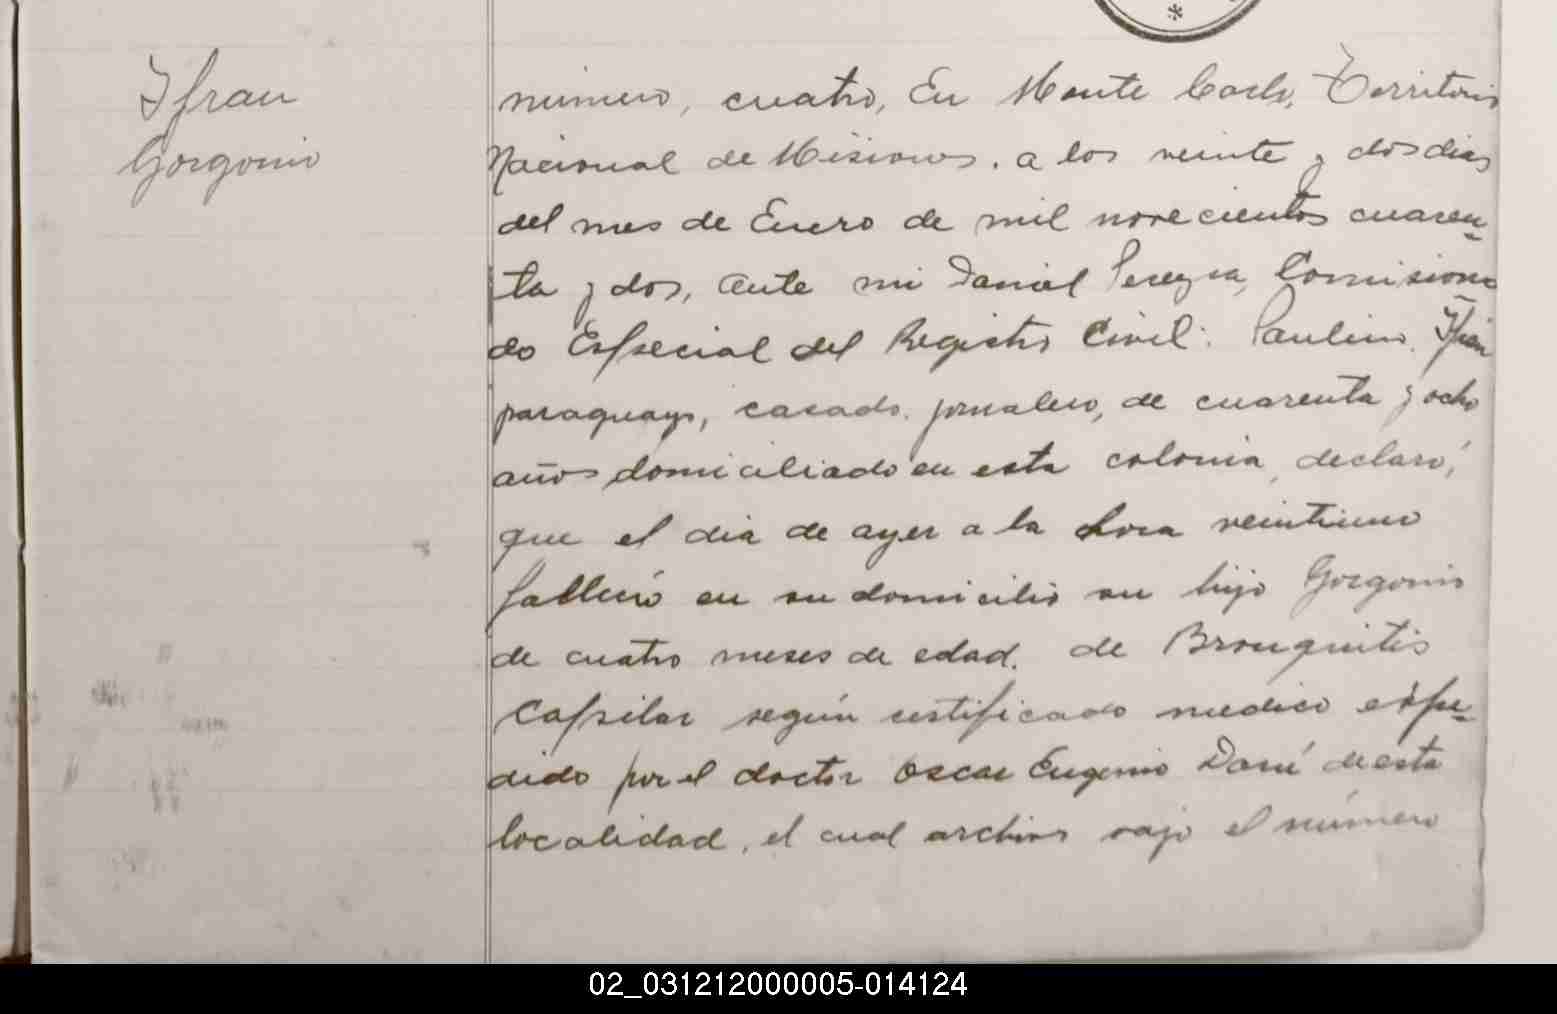 Ifran
Gorgonio
número, cuatro, En Monte Carlo, Territorio
Nacional de Misiones. a los veinte y dos dias
del mes de Enero de mil novecientos cuaren-
ta y dos, ante mi Daniel Pereyra, Comisiona
do Especial del Registro Civil: Paulino Ifran
paraguayo, casado. jornalero, de cuarenta y ocho
años domiciliado en esta colonia, declaró,
que el dia de ayer a la hora veintiuno
falleció en su domicilio su hijo Gorgonio
de cuatro meses de edad. de Bronquitis
Capilar según certificado medico expe-
dido por el doctor Oscar Eugenio de esta
localidad, el cual archivo vajo el número
02_031212000005-014124